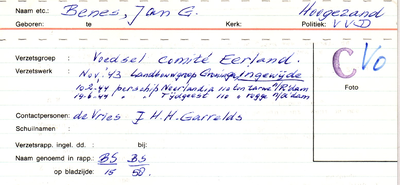 Naam etc.: Benes, Jan G. Hoogezand
Geboren: te Kerk: Politiek: VVD
Verzetsgroep: Voedsel comité Eerland.
Verzetswerk: Nov. '43 Landbouwgroep Groningen, Ingewijde
10.2.44 per schip Neerlandia 110 ton tarwe n/R'dam
19.6.44 " " Tijdgeest 110 " rogge n/A'dam
C Vo
Foto
Contactpersonen: de Vries J.H.H. Garrelds
Schuilnaam :
Verzetsrapp. ingel. dd. : bij:
Naam genoemd in rapp.: BS BS
op bladzijde: 15 50.